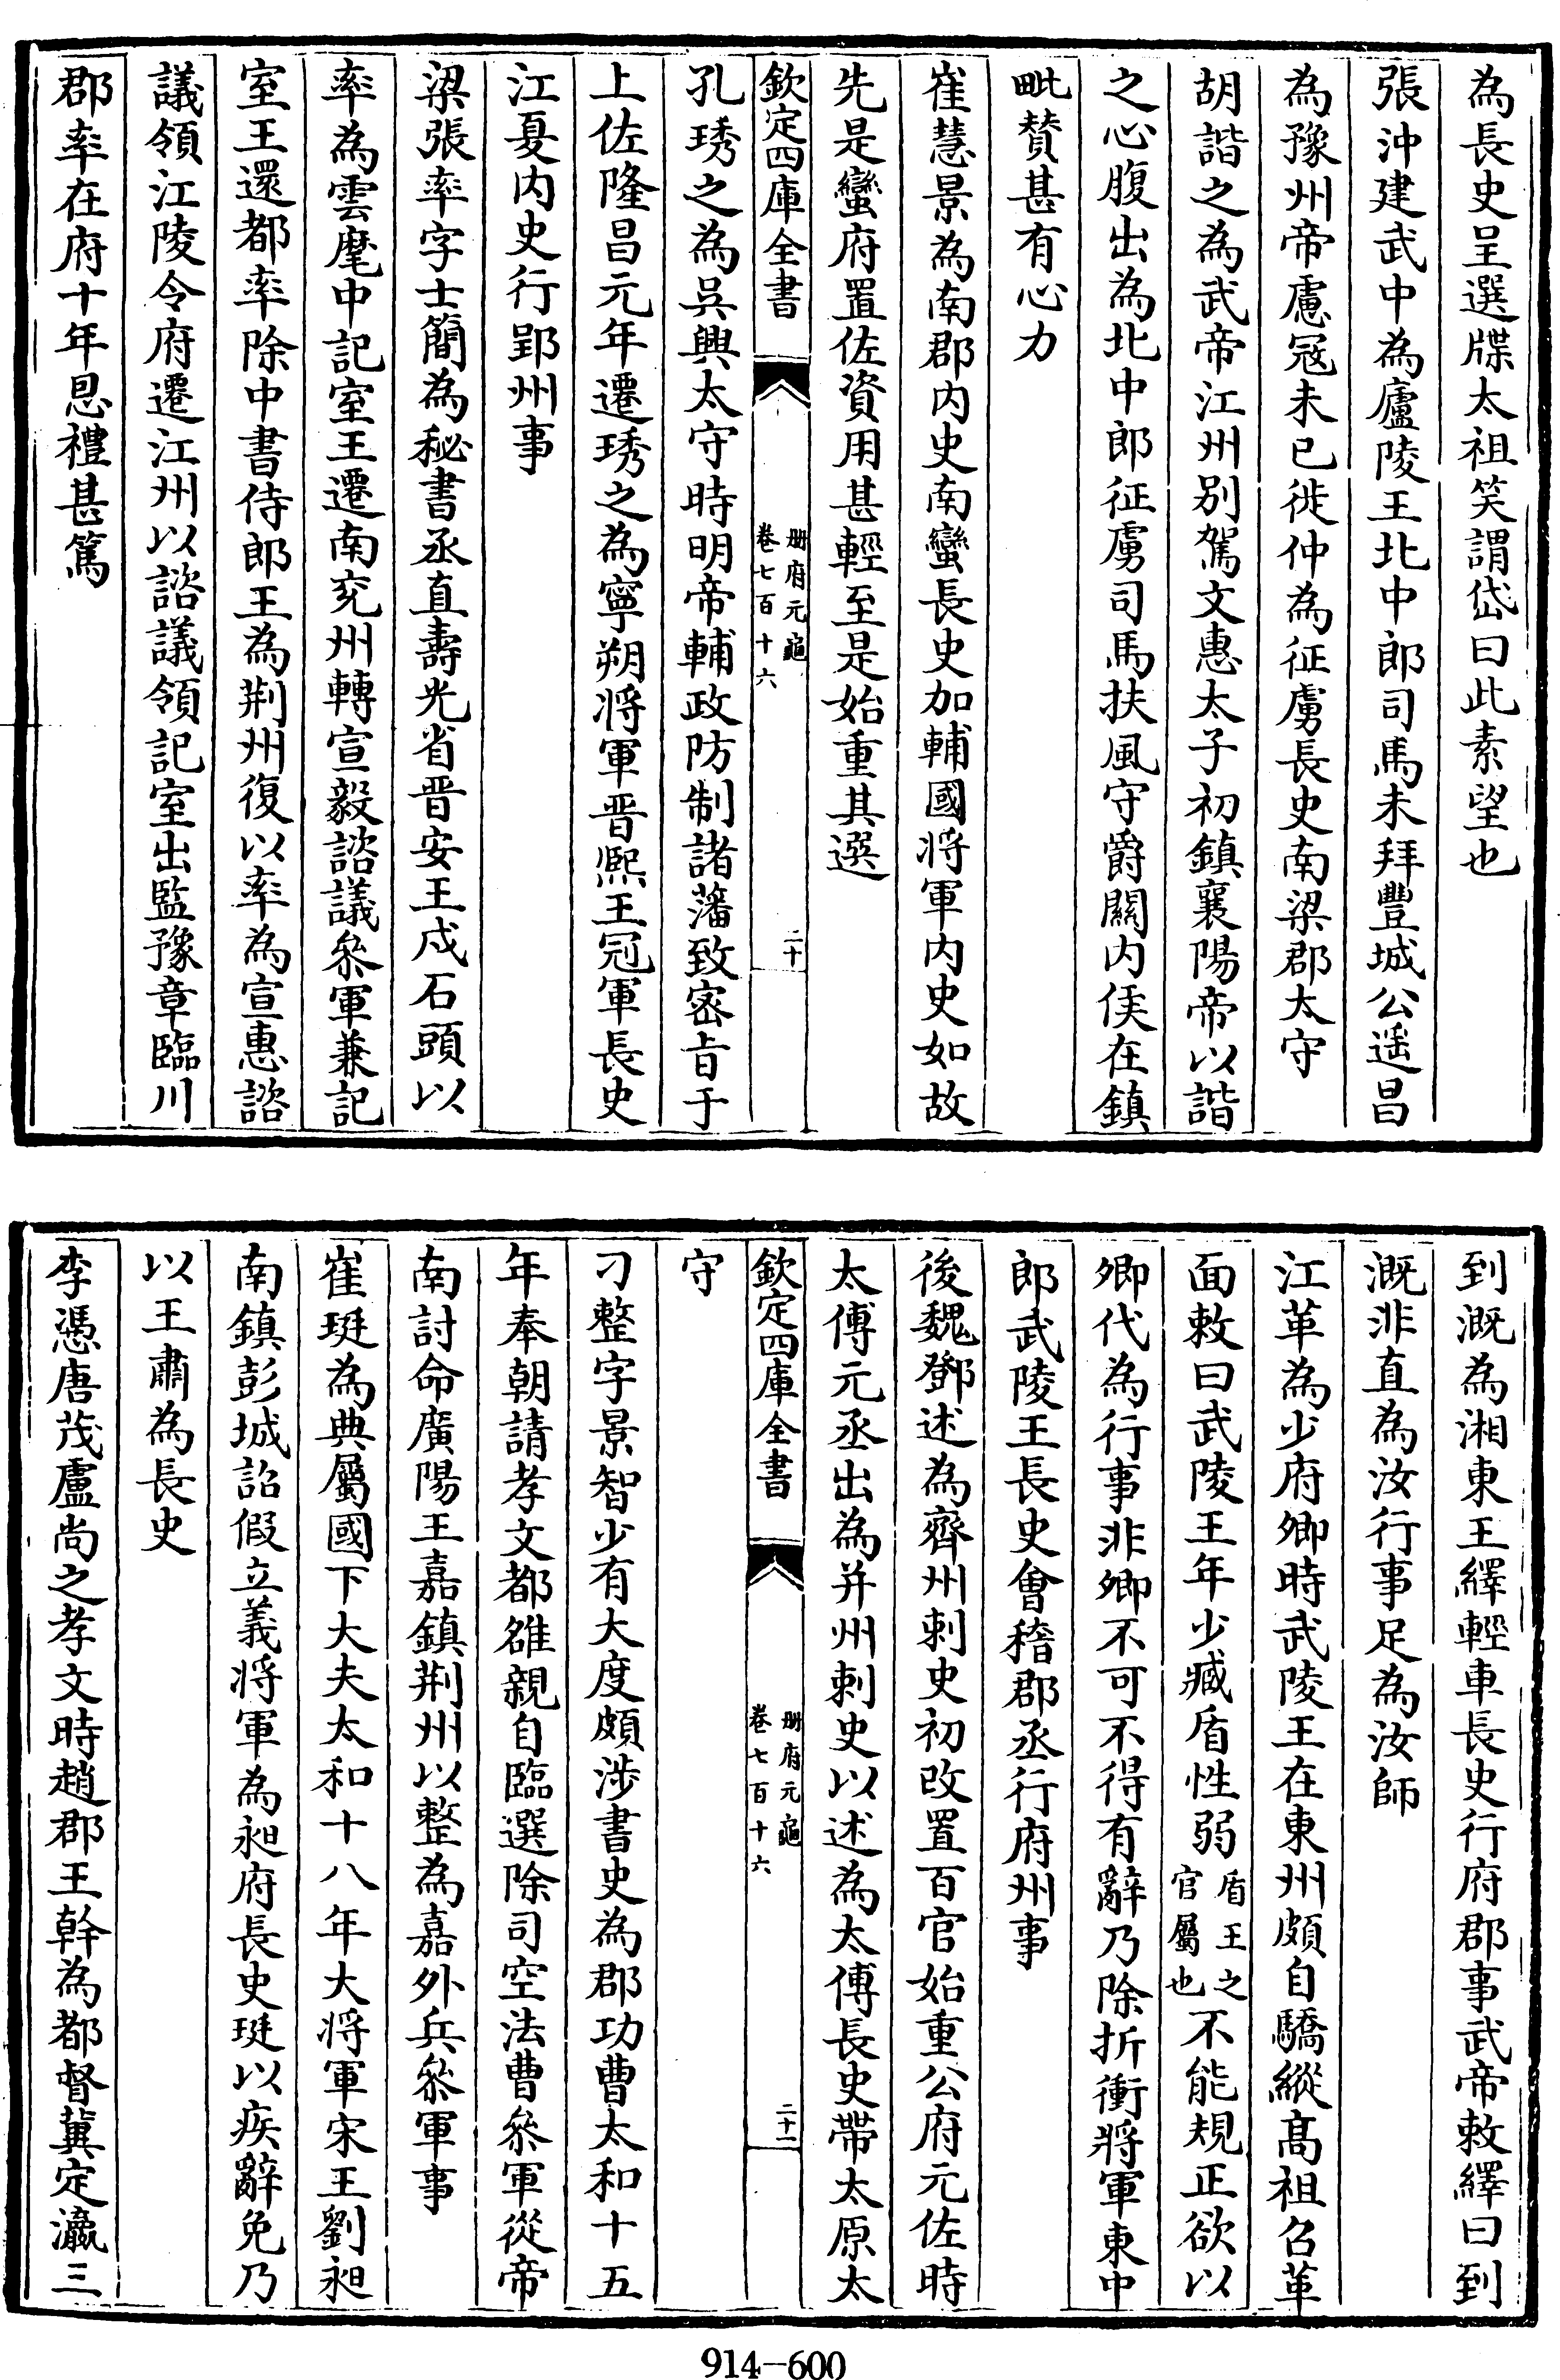 為長史呈選牒太祖笑謂岱曰此素望也
張沖建武中為廬陵王北中郎司馬未拜豐城公遥昌
為豫州帝慮冦未已徙仲為征虜長史南梁郡太守
胡諧之為武帝江州别駕文惠太子初鎮襄陽帝以諧
之心腹出為北中郎征虜司馬扶風守爵關内侯在鎮
毗賛甚有心力
崔慧景為南郡内史南蠻長史加輔國將軍内史如故
先是蠻府置佐資用甚輕至是始重其選
欽定四庫全書
册府元龜
卷七百十六
二十
孔琇之為吳興太守時明帝輔政防制諸藩致密旨于
上佐隆昌元年遷琇之為寧朔將軍晋熙王冠軍長史
江夏内史行郢州事
梁張率字士簡為秘書丞直壽光省晋安王戍石頭以
率為雲麾中記室王遷南兖州轉宣毅諮議叅軍兼記
室王還都率除中書侍郎王為荆州復以率為宣惠諮
議領江陵令府遷江州以諮議領記室出監豫章臨川
郡率在府十年恩禮甚篤
到溉為湘東王繹輕車長史行府郡事武帝敕繹曰到
溉非直為汝行事足為汝師
江革為少府卿時武陵王在東州頗自驕縱高祖召革
面敕曰武陵王年少臧盾性弱盾王之官屬也不能規正欲以
卿代為行事非卿不可不得有辭乃除折衝將軍東中
郎武陵王長史會稽郡丞行府州事
後魏鄧述為齊州刺史初改置百官始重公府元佐時
太傅元丕出為并州刺史以述為太傅長史帶太原太
欽定四庫全書
册府元龜
卷七百十六
二十一
守
刁整字景智少有大度頗涉書史為郡功曹太和十五
年奉朝請孝文都雒親自臨選除司空法曹叅軍從帝
南討命廣陽王嘉鎮荆州以整為嘉外兵叅軍事
崔珽為典屬國下大夫太和十八年大將軍宋王劉昶
南鎮彭城詔假立義將軍為昶府長史珽以疾辭免乃
以王肅為長史
李憑唐茂盧尚之孝文時趙郡王幹為都督冀定瀛三
914-600